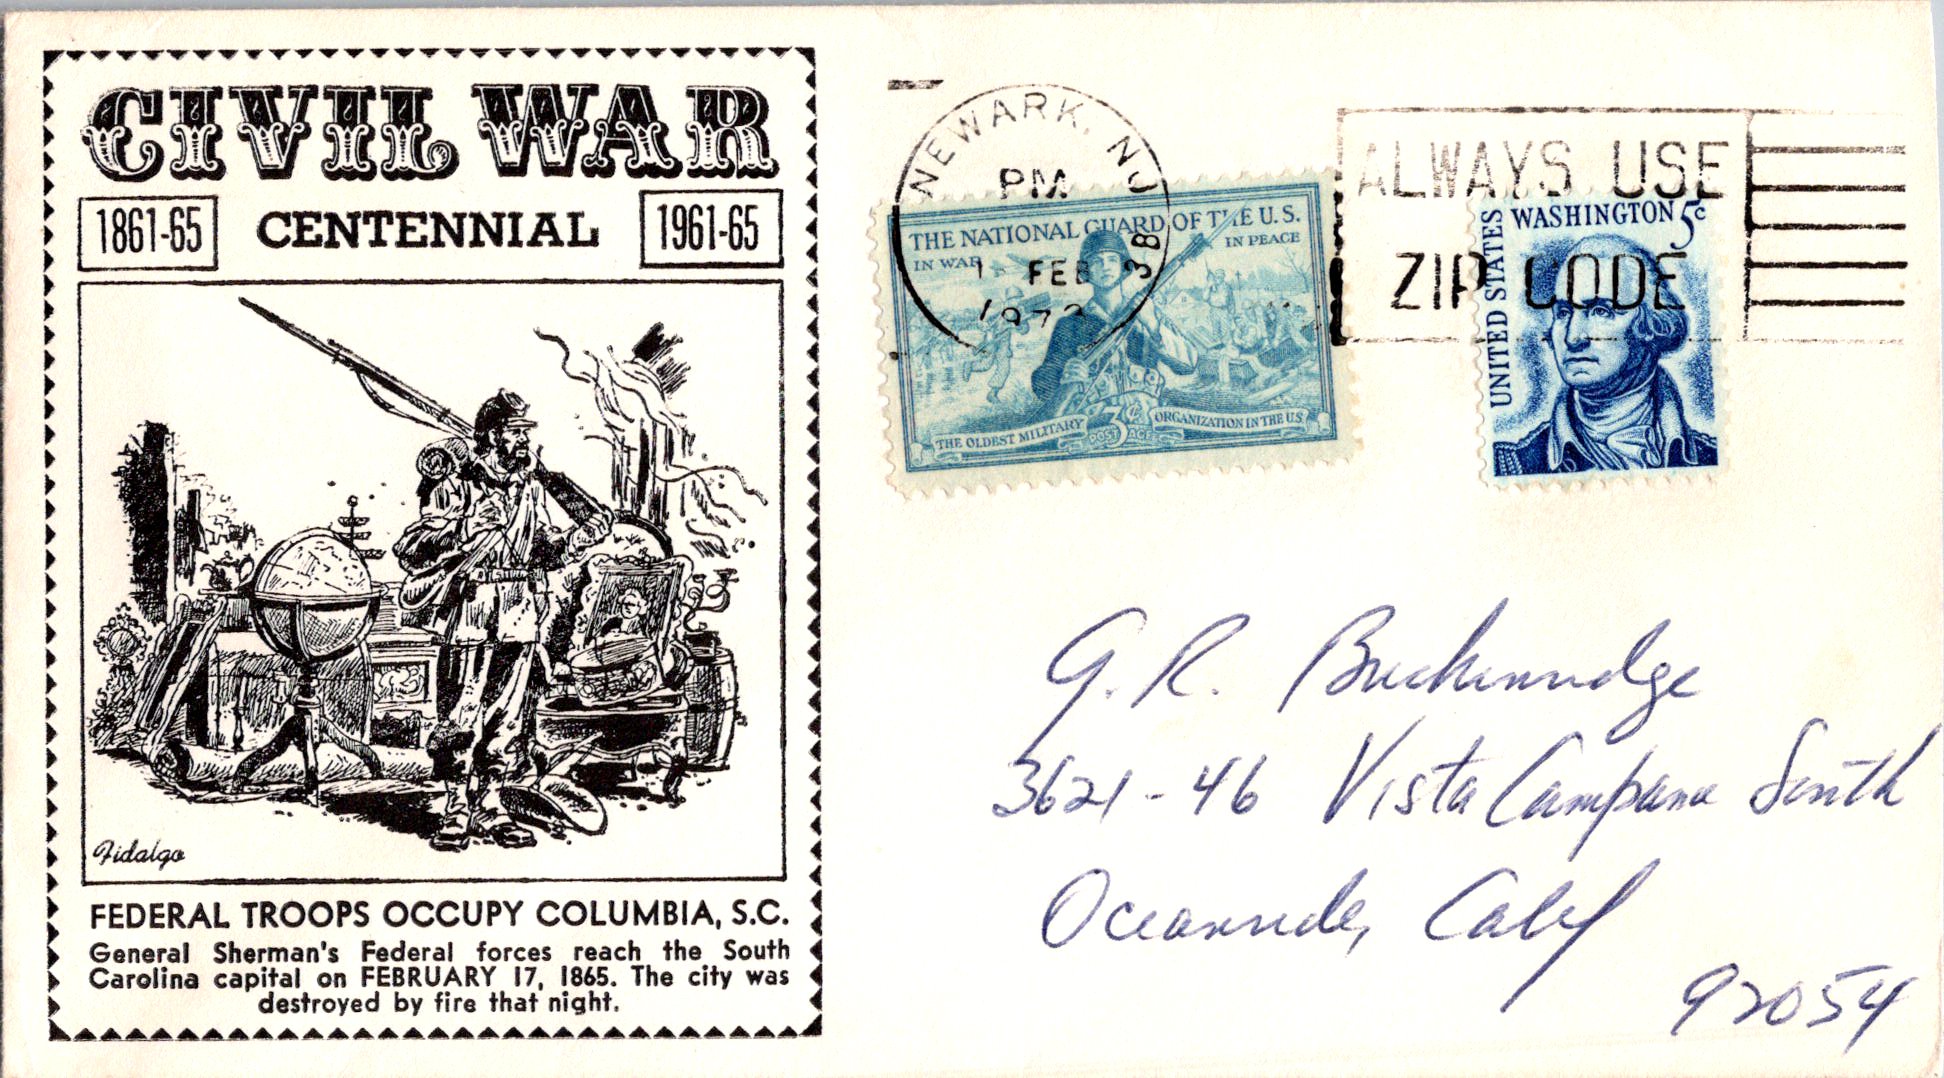 CIVIL WAR
1861-65 CENTENNIAL 1961-65
Fidalgo
FEDERAL TROOPS OCCUPY COLUMBIA, S.C.
General Sherman's Federal forces reach the South
Carolina capital on FEBRUARY 17, 1865. The city was
destroyed by fire that night.
NEWARK, NJ
PM
FEB
THE NATIONAL GUARD OF THE U.S.
IN WAR IN PEACE
THE OLDEST MILITARY ORGANIZATION IN THE U.S.
3¢
POSTAGE
ALWAYS USE
ZIP CODE
UNITED STATES
WASHINGTON 5c
G. R. Buckenridge
3621-46 Vista Campana South
Oceanside, Calif
92054